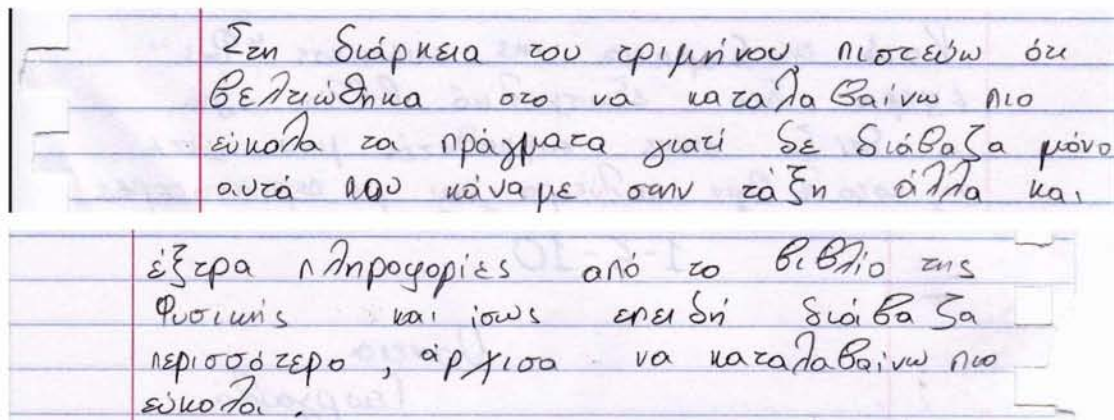 Στη διάρκεια του τριμήνου, πιστεύω ότι
βελτιώθηκα στο να καταλαβαίνω πιο
εύκολα τα πράγματα γιατί δε διάβαζα μόνο
αυτά που κάναμε στην τάξη άλλα και
έξτρα πληροφορίες από το βιβλίο της
Φυσικής και ίσως επειδή διάβαζα
περισσότερο, άρχισα να καταλαβαίνω πιο
εύκολα.